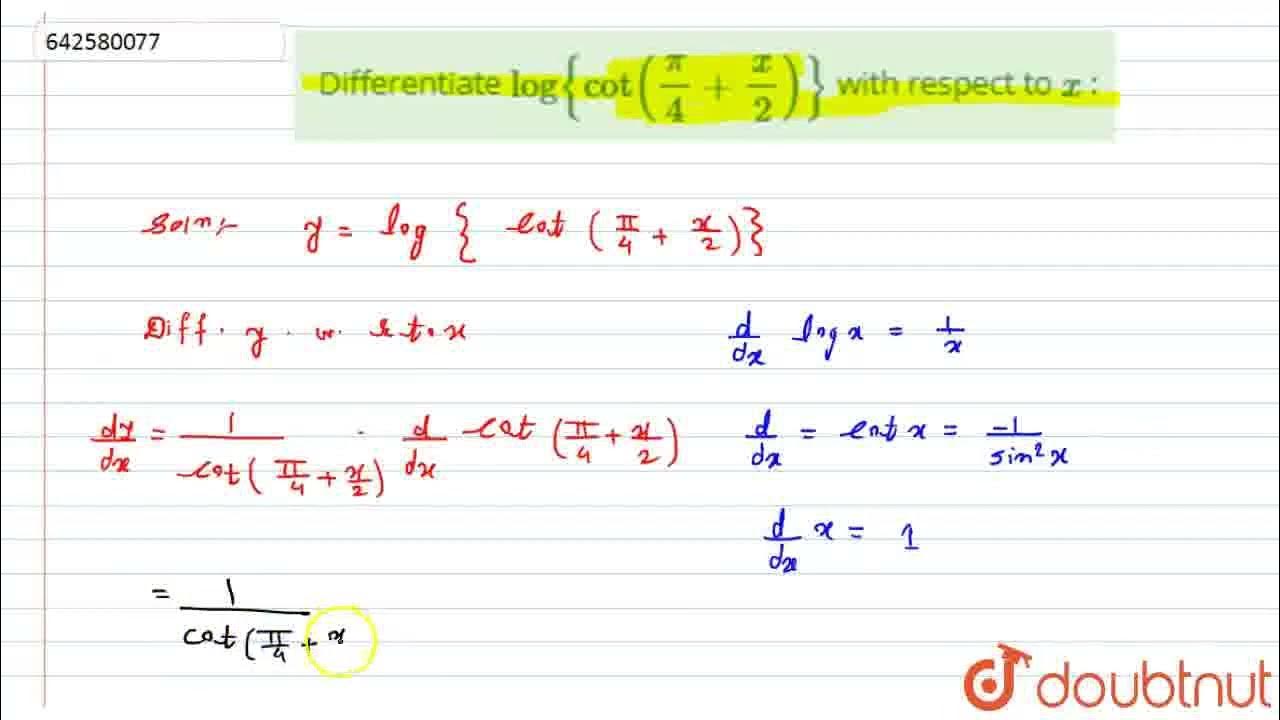 642580077
Differentiate log{cot(π/4 + x/2)} with respect to x :
Soln:- y = log { cot (π/4 + x/2)}
Diff. y. w. r. t. x
d/dx log x = 1/x
dy/dx = 1/cot(π/4 + x/2) · d/dx cot (π/4 + x/2)
d/dx = cot x = -1/sin²x
d/dx x = 1
= 1/cot(π/4 + x
doubtnut